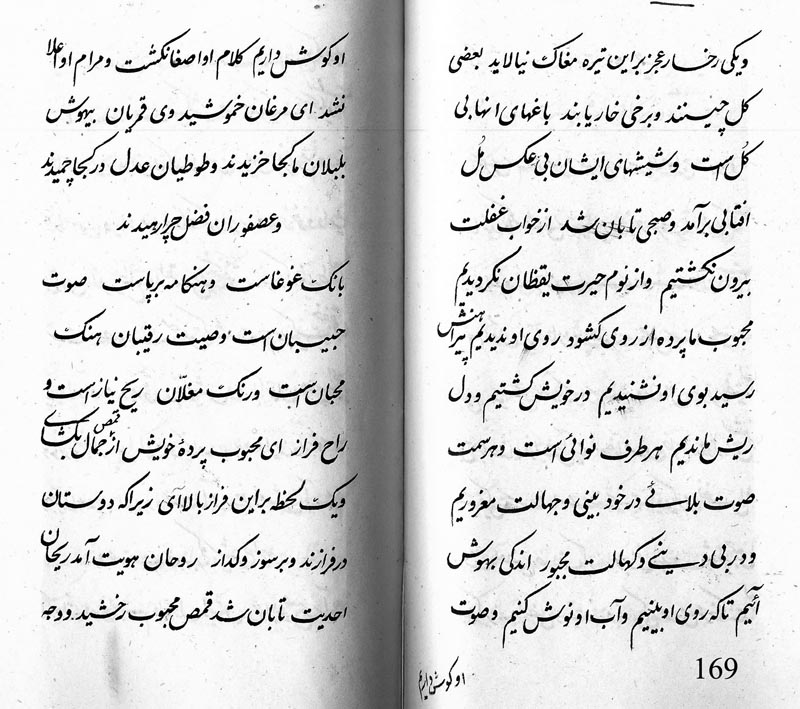 ویکی رخسار عجز بر این تیره مغاک نیالاید بعضی
کل چینند و برخی خار یابند باغهای انها بی
کل است و شیشهای ایشان بی عکس مُل
افتابی برآمد وصبحی تابان شد از خواب غفلت
بیرون نکشتیم و از نوم حیرت یقظان نکردیدیم
محبوب ما پرده از روی کشود روی او ندیدیم پیراهنش
رسید بوی او نشنیدیم در خویش کشتیم و دل
ریش ماندیم هر طرف نوائی است وهر سمت
صوت بلائے در خود بینی و جهالت مغروریم
و در بی دینے و کهالت مجبور اندکی بهوش
آئیم تا که روی او بینیم و آب او نوش کنیم وصوت
169
او کوش داریم
او کوش داریم کلام او اصغا نکشت و مرام او اعلا
نشد ای مرغان خموشید وی قمریان بیهوش
بلبلان ما کجا خزیدند و طوطیان عدل در کجا چمیدند
و عصفوران فضل چرا رمیدند
بانک غوغاست وهنکامه برپاست صوت
حبیبان است وصیت رقیبان هنک
محبان است ورنک مغلّان ریح نیاز است و
راح فراز ای محبوب پردهٔ خویش از قمص جمال بکشای
ویک لحظه بر این فراز بالا آی زیرا که دوستان
در فرازند و بر سوز و کداز روحان هویت آمد ریحان
احدیت تابان شد قمص محبوب رخشید و وجه